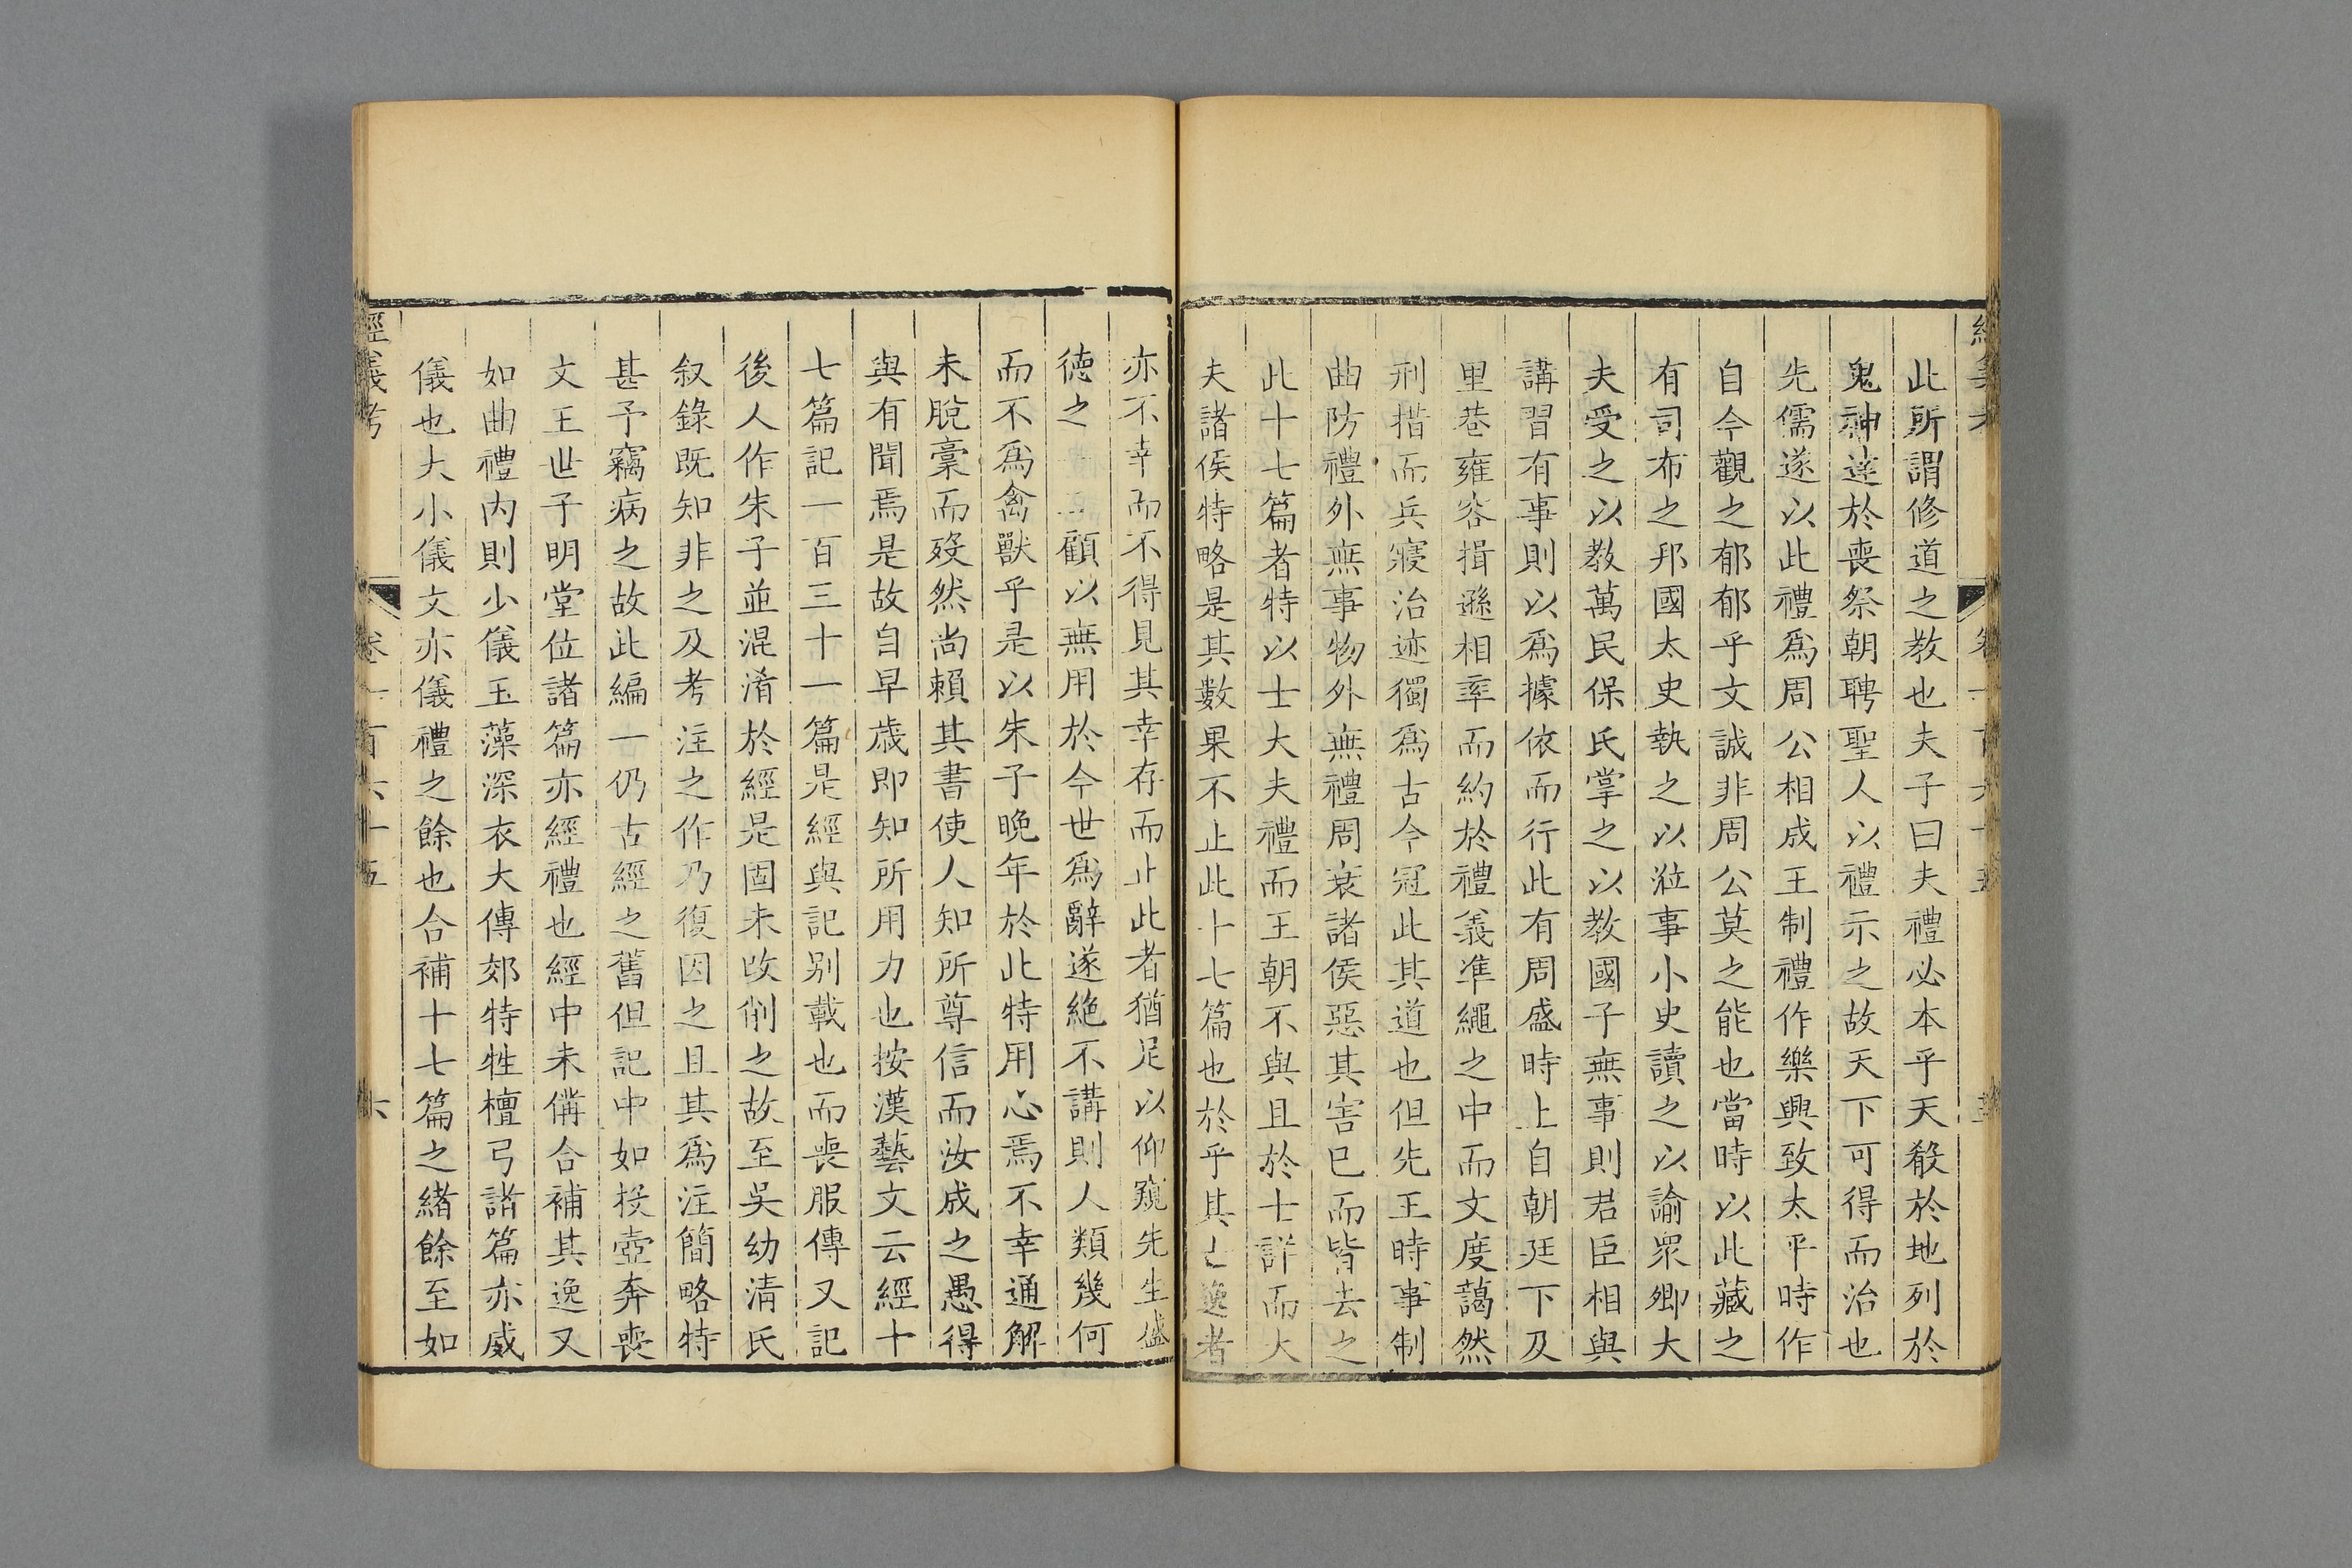 此所謂修道之教也夫子曰夫禮必本乎天殽於地列於
鬼神達於喪祭朝聘聖人以禮示之故天下可得而治也
先儒遂以此禮爲周公相成王制禮作樂興致太平時作
自今觀之郁郁乎文誠非周公莫之能也當時以此藏之
有司布之邦國太史執之以涖事小史讀之以諭眾卿大
夫受之以教萬民保氏掌之以教國子無事則君臣相與
講習有事則以爲據依而行此有周盛時上自朝廷下及
里巷雍容揖遜相率而約於禮義準繩之中而文度藹然
刑措而兵寢治迹獨爲古今冠此其道也但先王時事制
曲防禮外無事物外無禮周衰諸侯惡其害巳而皆去之
此十七篇者特以士大夫禮而王朝不與且於士詳而大
夫諸侯特略是其數果不止此十七篇也於乎其亡逸者
亦不幸而不得見其幸存而止此者猶足以仰窺先生盛
徳之 顧以無用於今世爲辭遂絶不講則人類幾何
而不爲禽獸乎是以朱子晚年於此特用心焉不幸通解
未脫稾而歿然尚賴其書使人知所尊信而汝成之愚得
與有聞焉是故自早歳即知所用力也按漢藝文云經十
七篇記一百三十一篇是經與記别載也而喪服傳又記
後人作朱子並混淆於經是固未改削之故至吳幼清氏
叙錄既知非之及考注之作乃復因之且其爲注簡略特
甚予竊病之故此編一仍古經之舊但記中如投壺奔喪
文王世子明堂位諸篇亦經禮也經中未備合補其逸又
如曲禮内則少儀玉藻深衣大傳郊特牲檀弓諸篇亦威
儀也大小儀文亦儀禮之餘也合補十七篇之緒餘至如
經義考 卷一百六十五 六